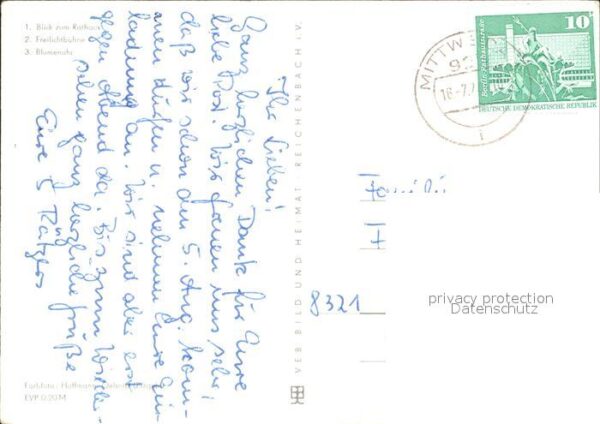 1. Blick zum Rathaus
2. Freilichtbühne
3. Blumenuhr
Ihr Lieben!
Ganz herzlichen Dank für Eure
liebe Post. Wir freuen uns sehr,
daß wir schon am 5. Aug. kom-
men dürfen u. nehmen Eure Ein-
ladung an. Wir sind aber erst
gegen Abend da. Bis zum Wieder-
sehen ganz herzliche Grüße
Eure 5
VEB BILD UND HEIMAT REICHENBACH i. V.
Farbfoto: Hoffmann
EVP 0,20 M
MITTW
92
18.-7.7
i
10
Berlin, Rathausstraße
DEUTSCHE DEMOKRATISCHE REPUBLIK
Familie
F
8321
privacy protection
Datenschutz